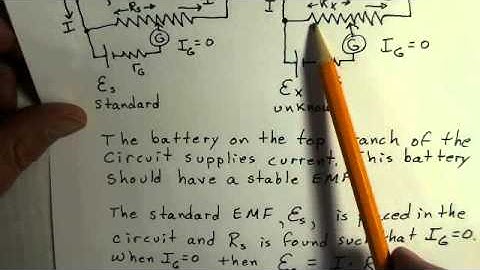 I ← Rs → I
I ← Rx →
G IG=0
G IG=0
rG
Ɛs
standard
Ɛx
unkno
The battery on the top branch of the
circuit supplies current. This battery
should have a stable EMF
The standard EMF, Ɛs, is placed in the
circuit and Rs is found such that IG=0.
When IG=0 then Ɛs = I R